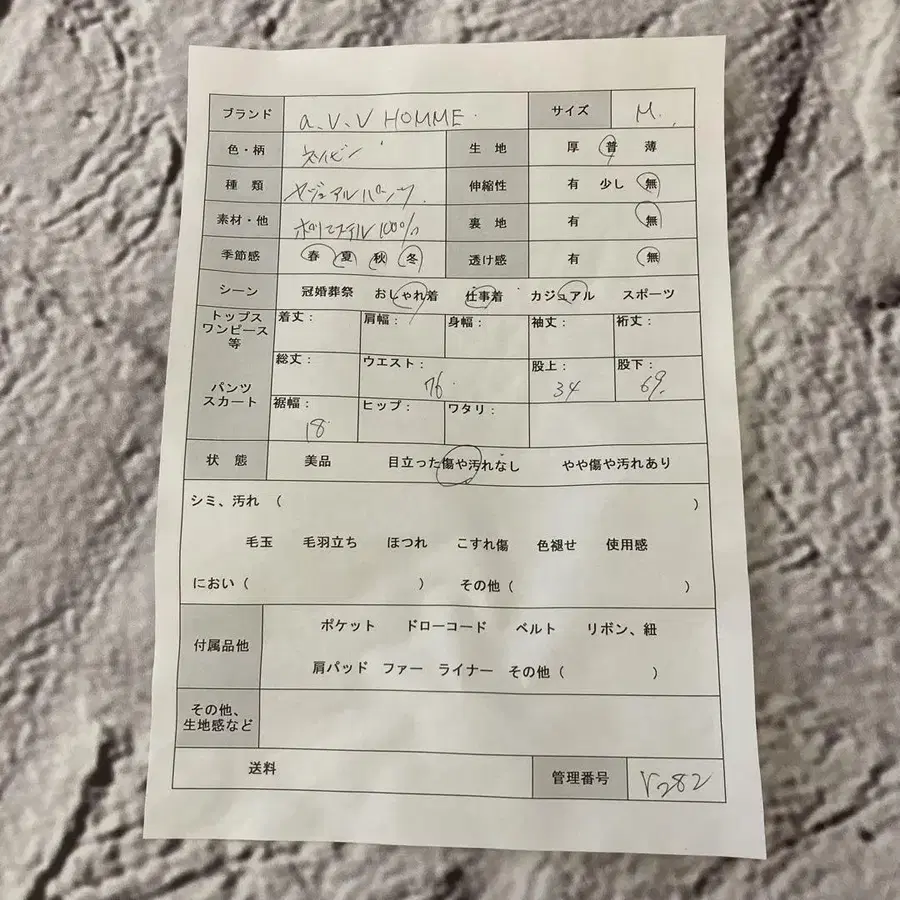 ブランド a.v.v HOMME サイズ M
色・柄 ネイビー 生地 厚 普 薄
種類 カジュアルパンツ 伸縮性 有 少し 無
素材・他 ポリエステル100% 裏地 有 無
季節感 春 夏 秋 冬 透け感 有 無
シーン 冠婚葬祭 おしゃれ着 仕事着 カジュアル スポーツ
トップス ワンピース 等 着丈： 肩幅： 身幅： 袖丈： 裄丈：
パンツ スカート 総丈： ウエスト： 76 股上： 34 股下： 69
裾幅： 18 ヒップ： ワタリ：
状態 美品 目立った傷や汚れなし やや傷や汚れあり
シミ、汚れ （ ）
毛玉 毛羽立ち ほつれ こすれ傷 色褪せ 使用感
におい（ ） その他（ ）
付属品他 ポケット ドローコード ベルト リボン、紐
肩パッド ファー ライナー その他（ ）
その他、
生地感など
送料 管理番号 V282